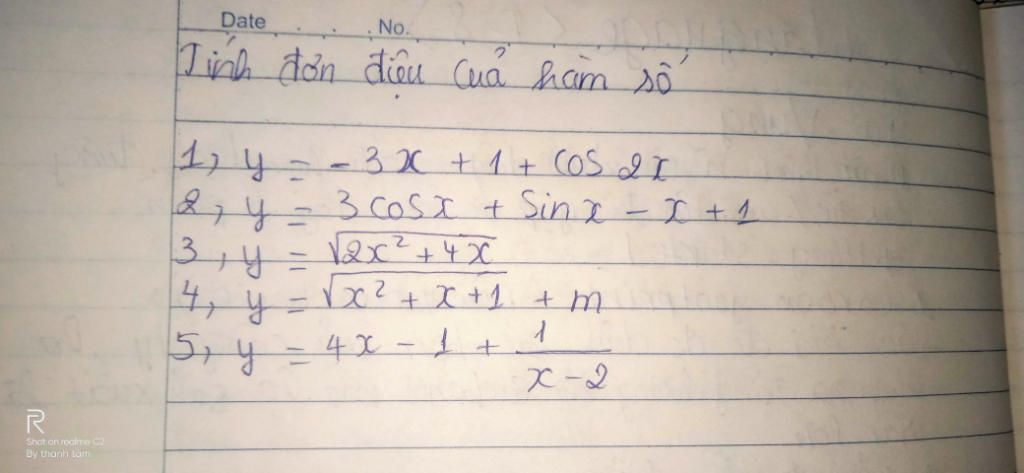 Date ........ No.
Tính đơn điệu của hàm số
1, y = - 3x + 1 + cos 2x
2, y = 3 cosx + sinx - x + 1
3, y = √2x² + 4x
4, y = √x² + x + 1 + m
5, y = 4x - 1 + 1/x - 2
R
Shot on realme C2
By thanh tâm